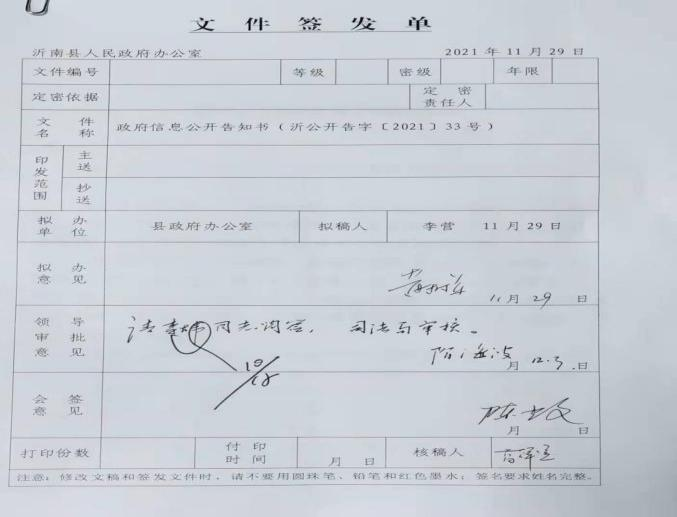 文件签发单
沂南县人民政府办公室 2021 年 11 月 29 日
文件编号 等级 密级 年限
定密依据 定密责任人
文件名称 政府信息公开告知书（沂公开告字〔2021〕33号）
印发范围 主送
抄送
拟办单位 县政府办公室 拟稿人 李营 11 月 29 日
拟办意见
11月 29 日
领导审批意见 请 同志阅签，司法局审核。
月 12.3 日
会签意见
月 日
打印份数 付印时间 月 日 核稿人
注意：修改文稿和签发文件时，请不要用圆珠笔、铅笔和红色墨水；签名要求姓名完整。